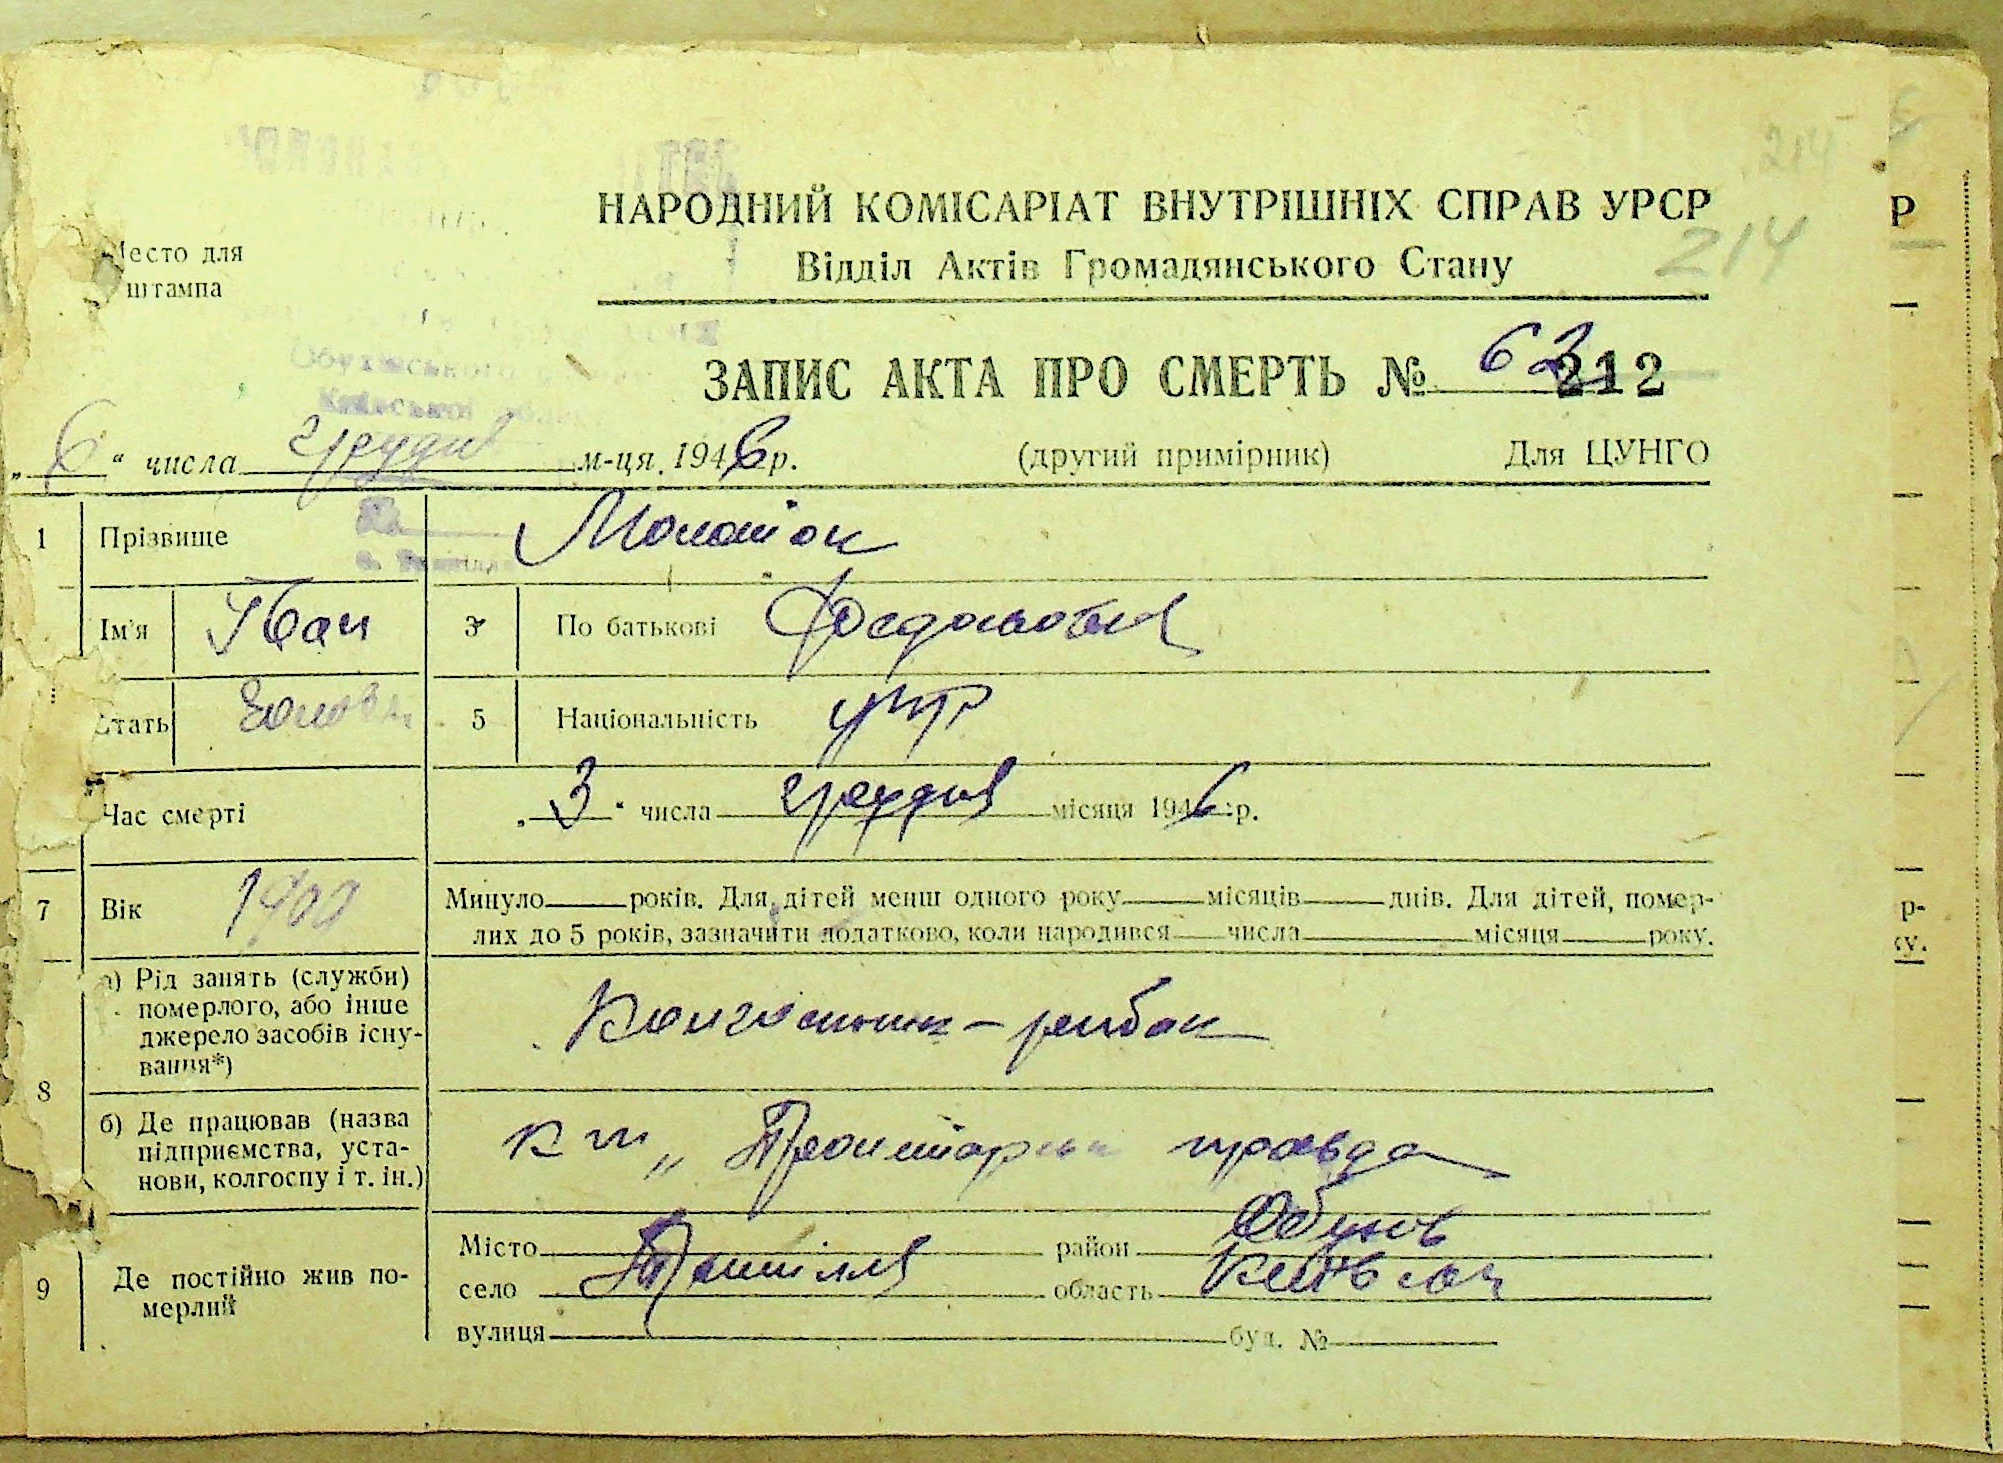 214
НАРОДНИЙ КОМІСАРІАТ ВНУТРІШНІХ СПРАВ УРСР
Відділ Актів Громадянського Стану
214
Место для
штампа
ЗАПИС АКТА ПРО СМЕРТЬ № 62 212
Обухівського
Київської
„6" числа грудня м-ця 1946 р. (другий примірник) Для ЦУНГО
1 Прізвище
Ім'я Іван 3 По батькові Феодосьович
Стать 5 Національність укр
Час смерті „3" числа грудня місяця 1946 р.
7 Вік 1900 Минуло років. Для дітей менш одного року місяців днів. Для дітей, помер-
лих до 5 років, зазначити додатково, коли народився числа місяця року.
8 а) Рід занять (служби)
померлого, або інше
джерело засобів існу-
вання*)
Колгоспник – рибак
б) Де працював (назва
підприємства, уста-
нови, колгоспу і т. ін.)
к-п „Пролетарська правда
9 Де постійно жив по-
мерлий
Місто район Обухов
село область Київська
вулиця буд. №